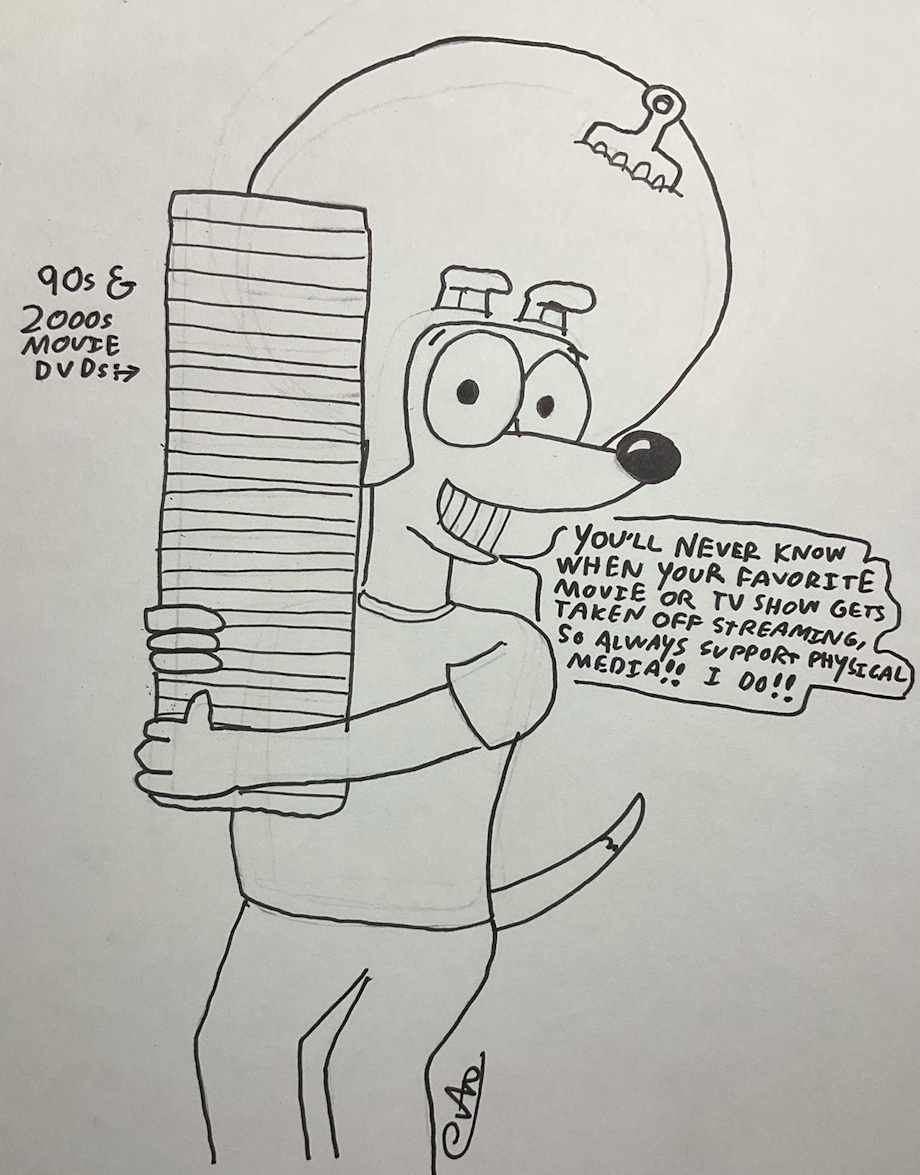 90s &
2000s
MOVIE
DVDs:→
YOU'LL NEVER KNOW
WHEN YOUR FAVORITE
MOVIE OR TV SHOW GETS
TAKEN OFF STREAMING,
SO ALWAYS SUPPORT PHYSICAL
MEDIA!! I DO!!